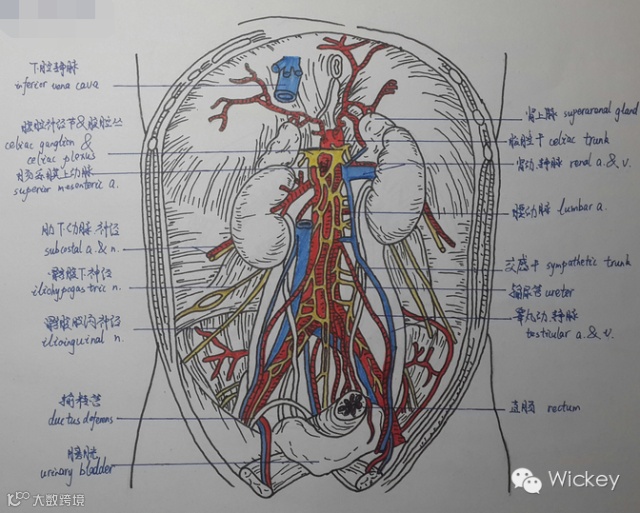 下腔静脉
inferior vena cava
腹腔神经节&腹腔丛
celiac ganglion &
celiac plexus
肠系膜上动脉
superior mesenteric a.
肋下动脉.神经
subcostal a. & n.
髂腹下神经
iliohypogastric n.
髂腹股沟神经
ilioinguinal n.
输精管
ductus deferens
膀胱
urinary bladder
肾上腺 suprarenal gland
腹腔干 celiac trunk
肾动.静脉 renal a. & v.
腰动脉 lumbar a.
交感干 sympathetic trunk
输尿管 ureter
睾丸动.静脉
testicular a. & v.
直肠 rectum
Wickey
大数跨境